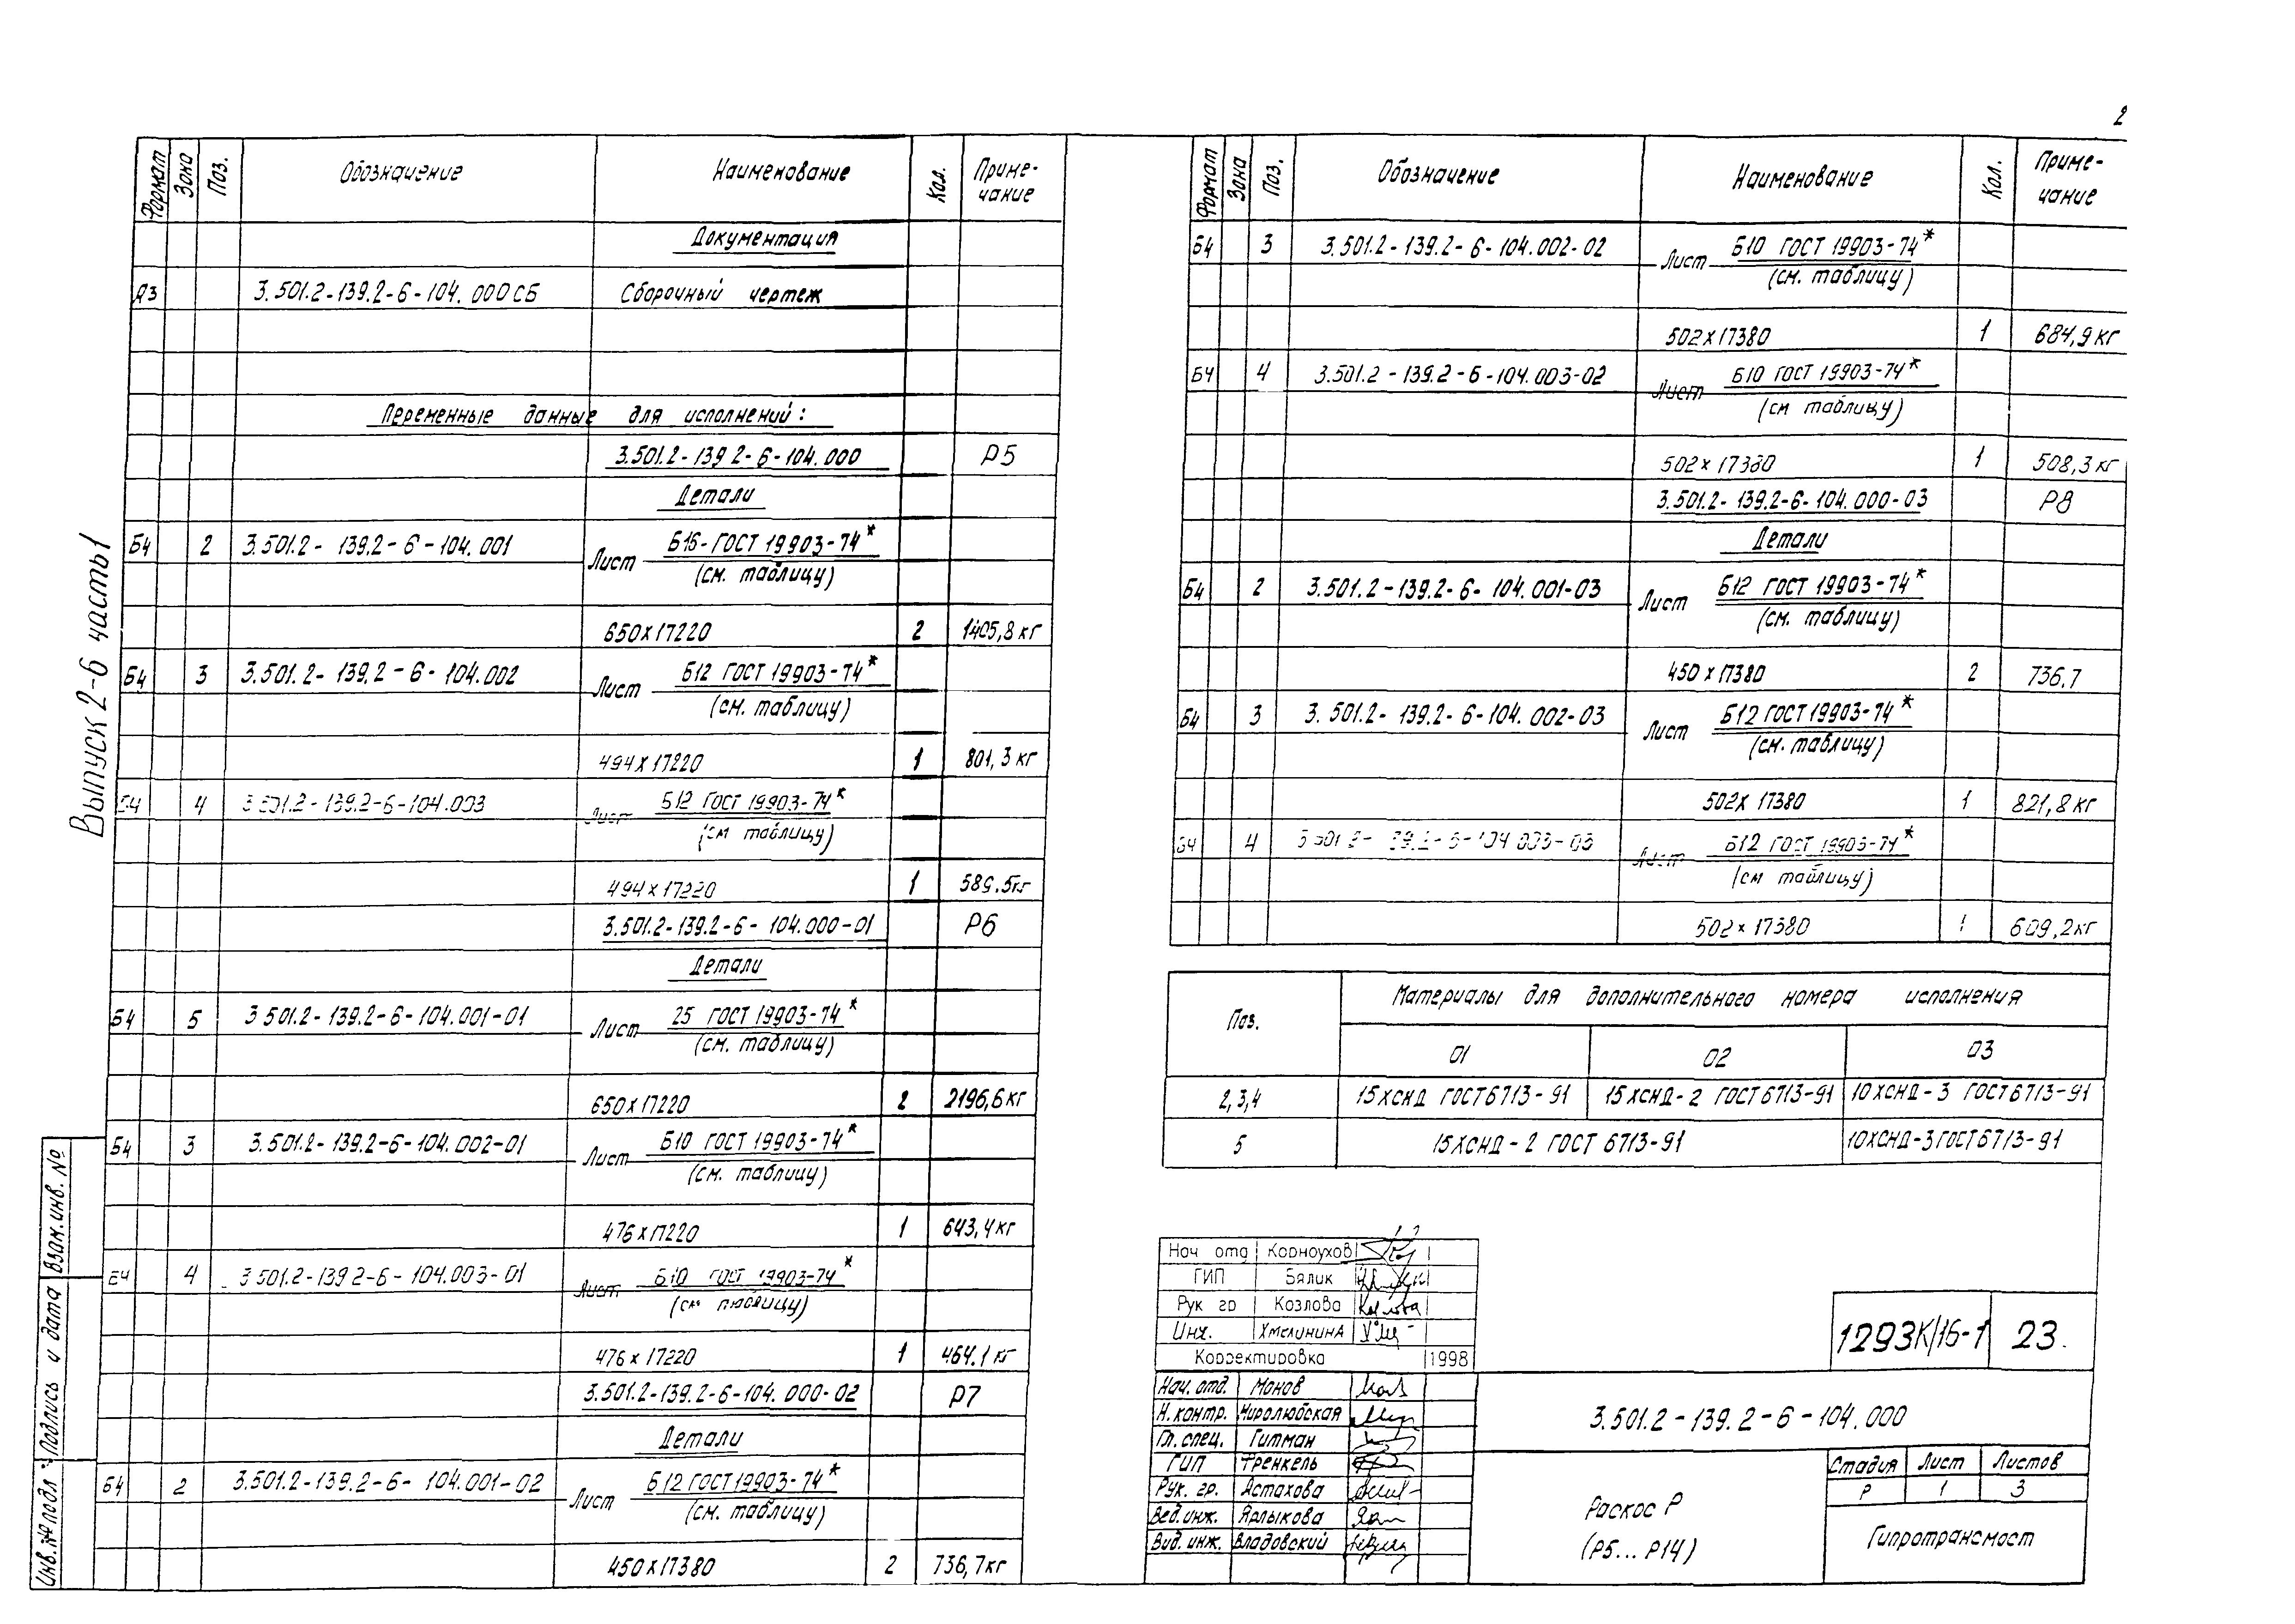 2
Выпуск 2-6 часть 1
Формат Зона Поз. Обозначение Наименование Кол. Приме-чание
Документация
А3 3.501.2-139.2-6-104.000СБ Сборочный чертеж
Переменные данные для исполнений:
3.501.2-139 2-6-104.000 Р5
Детали
Б4 2 3.501.2-139.2-6-104.001 Лист Б16-ГОСТ 19903-74*
(см. таблицу)
650х17220 2 1405,8 кг
Б4 3 3.501.2-139.2-6-104.002 Лист Б12 ГОСТ 19903-74*
(см. таблицу)
494х17220 1 801,3 кг
Б4 4 3.501.2-139.2-6-104.003 Лист Б12 ГОСТ 19903-74*
(см таблицу)
494х17220 1 589.5кг
3.501.2-139.2-6-104.000-01 Р6
Детали
Б4 5 3 501.2-139.2-6-104.001-01 Лист 25 ГОСТ 19903-74*
(см. таблицу)
650х17220 2 2196,6 кг
Б4 3 3.501.2-139.2-6-104.002-01 Лист Б10 ГОСТ 19903-74*
(см. таблицу)
476х17220 1 643,4 кг
Б4 4 3.501.2-139 2-6-104.003-01 Лист Б10 ГОСТ 19903-74*
(см таблицу)
476х17220 1 464.1 кг
3.501.2-139.2-6-104.000-02 Р7
Детали
Б4 2 3.501.2-139.2-6-104.001-02 Лист Б12 ГОСТ 19903-74*
(см. таблицу)
450х17380 2 736,7кг
Формат Зона Поз. Обозначение Наименование Кол. Приме-чание
Б4 3 3.501.2-139.2-6-104.002-02 Лист Б10 ГОСТ 19903-74*
(см. таблицу)
502х17380 1 684,9 кг
Б4 4 3.501.2-139.2-6-104.003-02 Лист Б10 ГОСТ 19903-74*
(см таблицу)
502х17380 1 508,3 кг
3.501.2-139.2-6-104.000-03 Р8
Детали
Б4 2 3.501.2-139.2-6-104.001-03 Лист Б12 ГОСТ 19903-74*
(см. таблицу)
450х17380 2 736,7
Б4 3 3.501.2-139.2-6-104.002-03 Лист Б12 ГОСТ 19903-74*
(см. таблицу)
502х17380 1 821,8 кг
Б4 4 3 501 2-139.2-6-104 003-03 Лист Б12 ГОСТ 19903-74*
(см таблицу)
502х17380 1 609,2кг
Поз. Материалы для дополнительного номера исполнения
01 02 03
2,3,4 15ХСНД ГОСТ6713-91 15ХСНД-2 ГОСТ6713-91 10ХСНД-3 ГОСТ6713-91
5 15ХСНД-2 ГОСТ 6713-91 10ХСНД-3ГОСТ6713-91
Нач отд Корноухов
ГИП Бялик
Рук гр Козлова
Инж. Хмелинина
Корректировка 1998
1293К/16-1 23.
Нач. отд. Монов
Н.контр. Миролюбская
Гл. спец. Гитман
ГИП Френкель
Рук. гр. Астахова
Вед.инж. Ярлыкова
Вид. инж. Владовский
3.501.2-139.2-6-104.000
Раскос Р
(Р5...Р14)
Стадия Лист Листов
Р 1 3
Гипротрансмост
Инв.№ подл. Подпись и дата Взам.инв. №